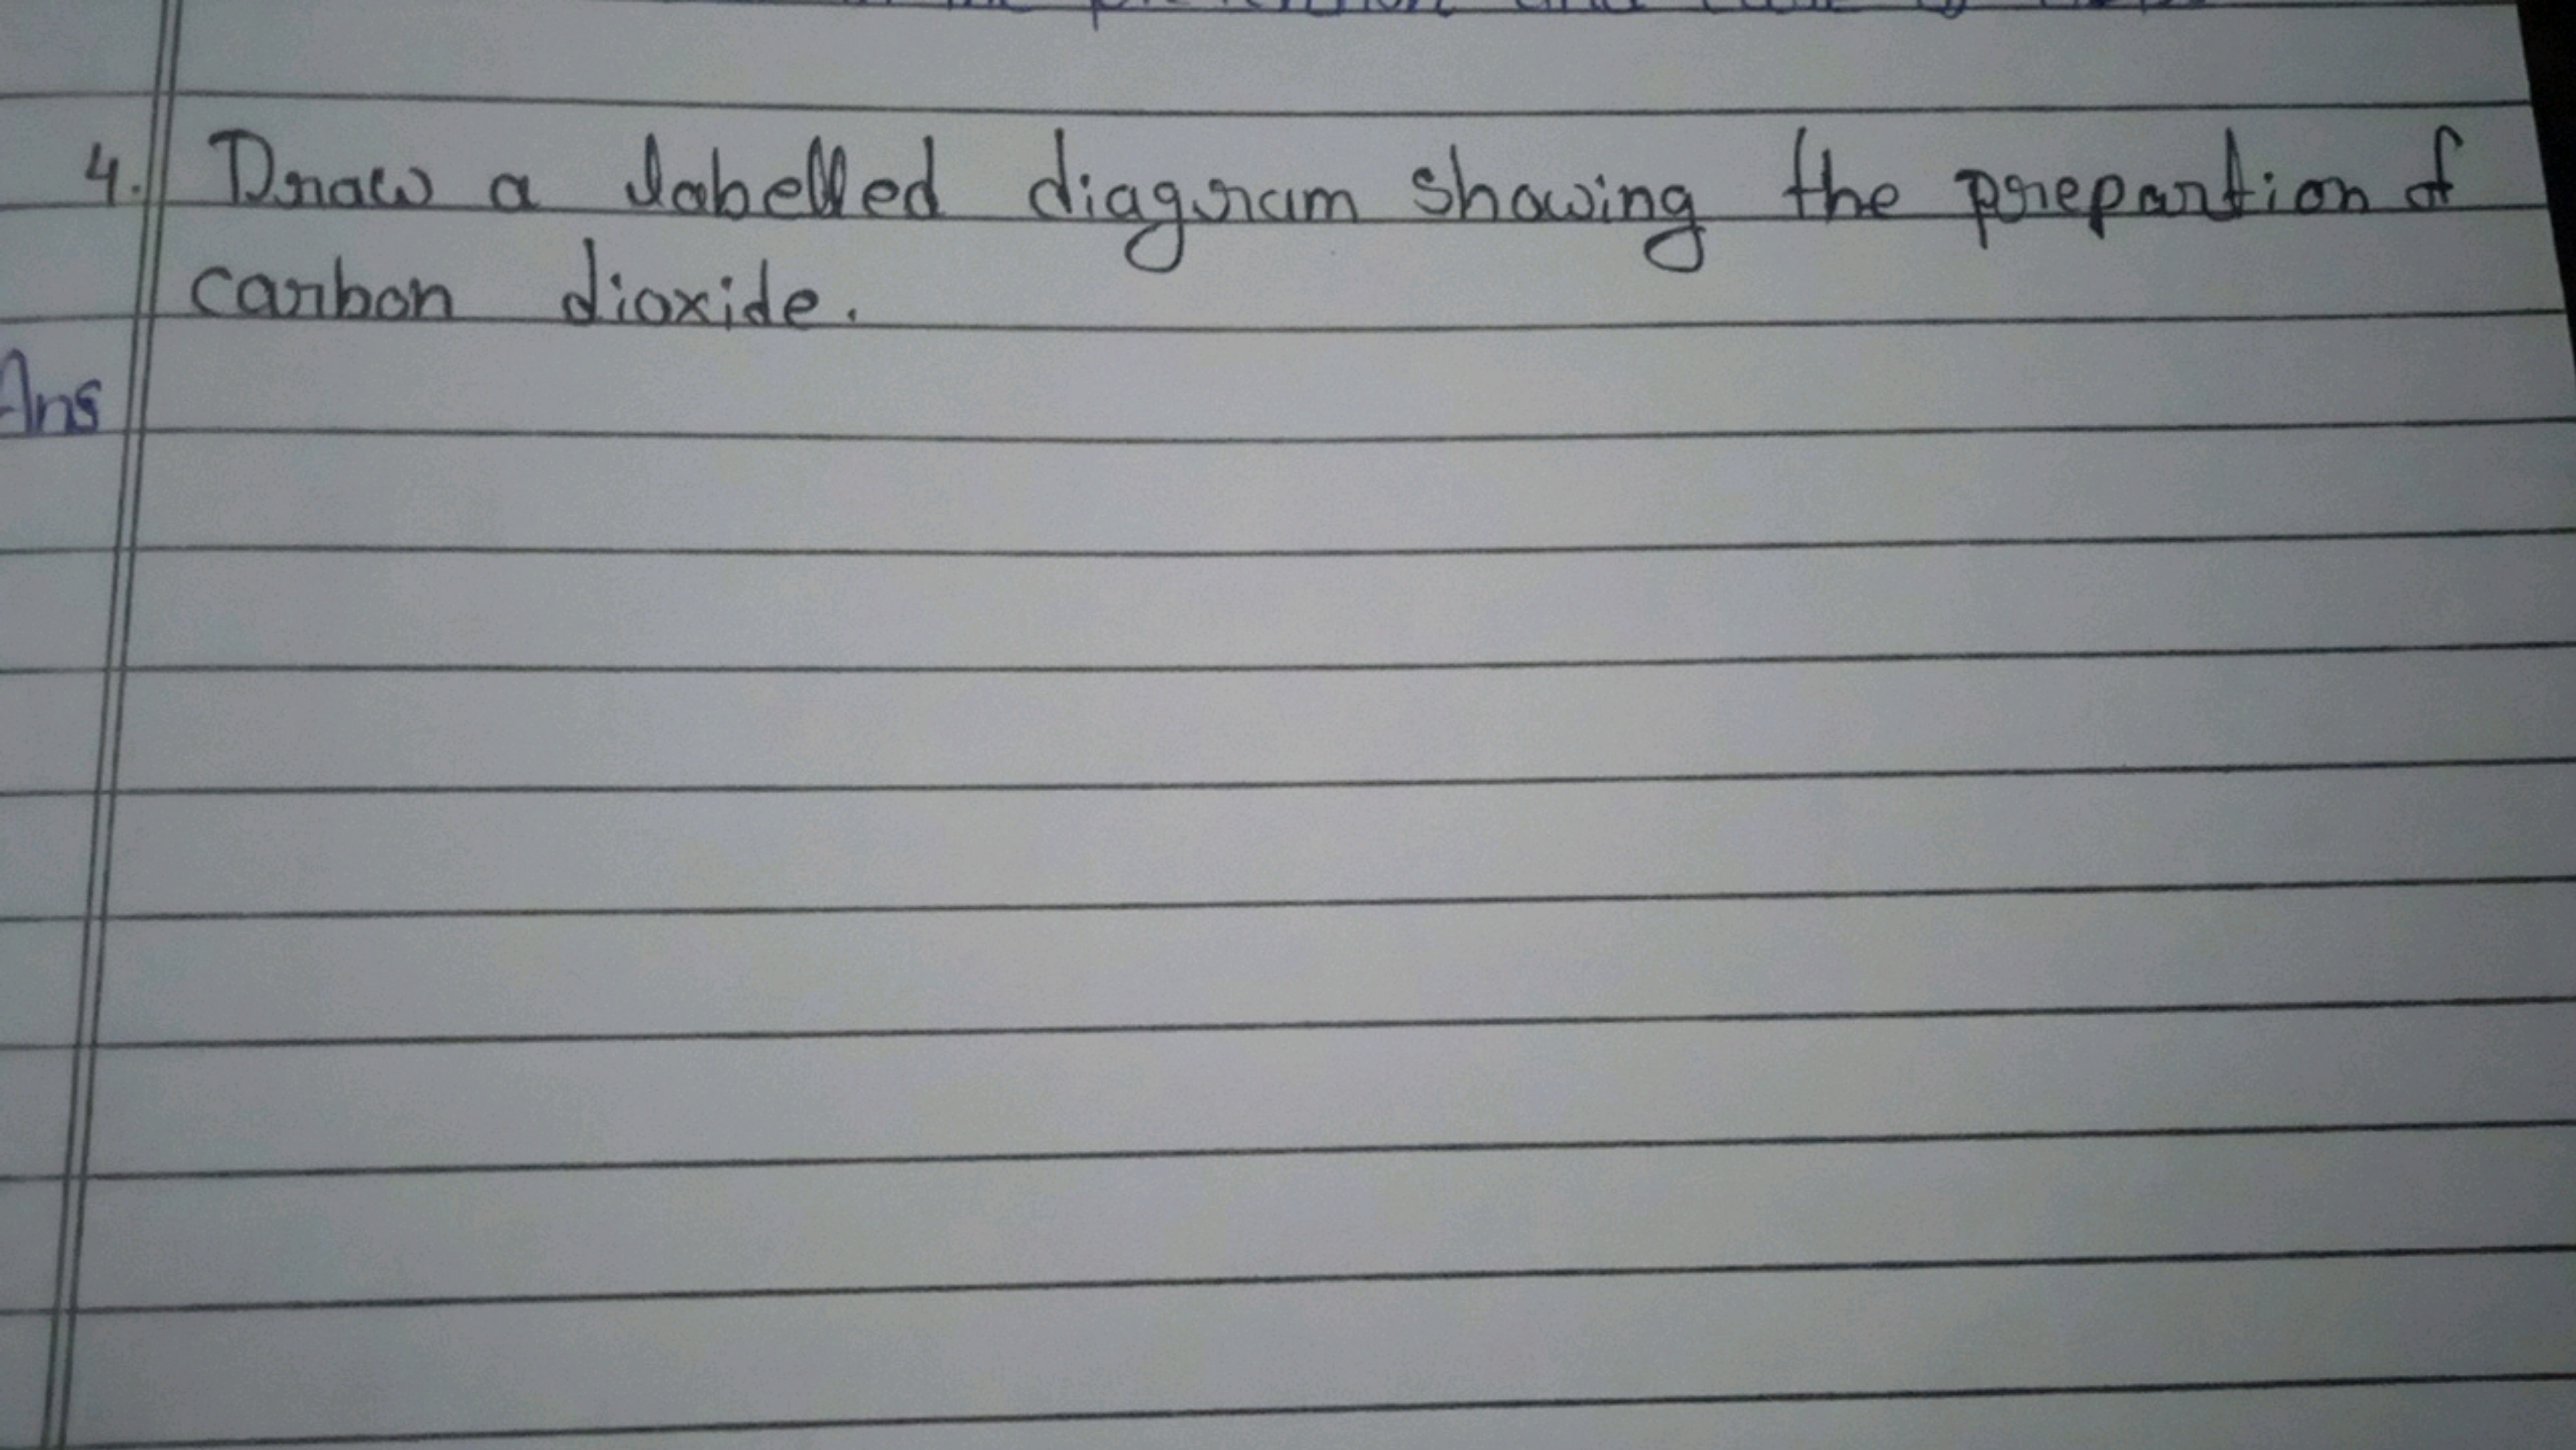 4. Draw a labelled diagram showing the prepartion of
carbon dioxide.
Ans